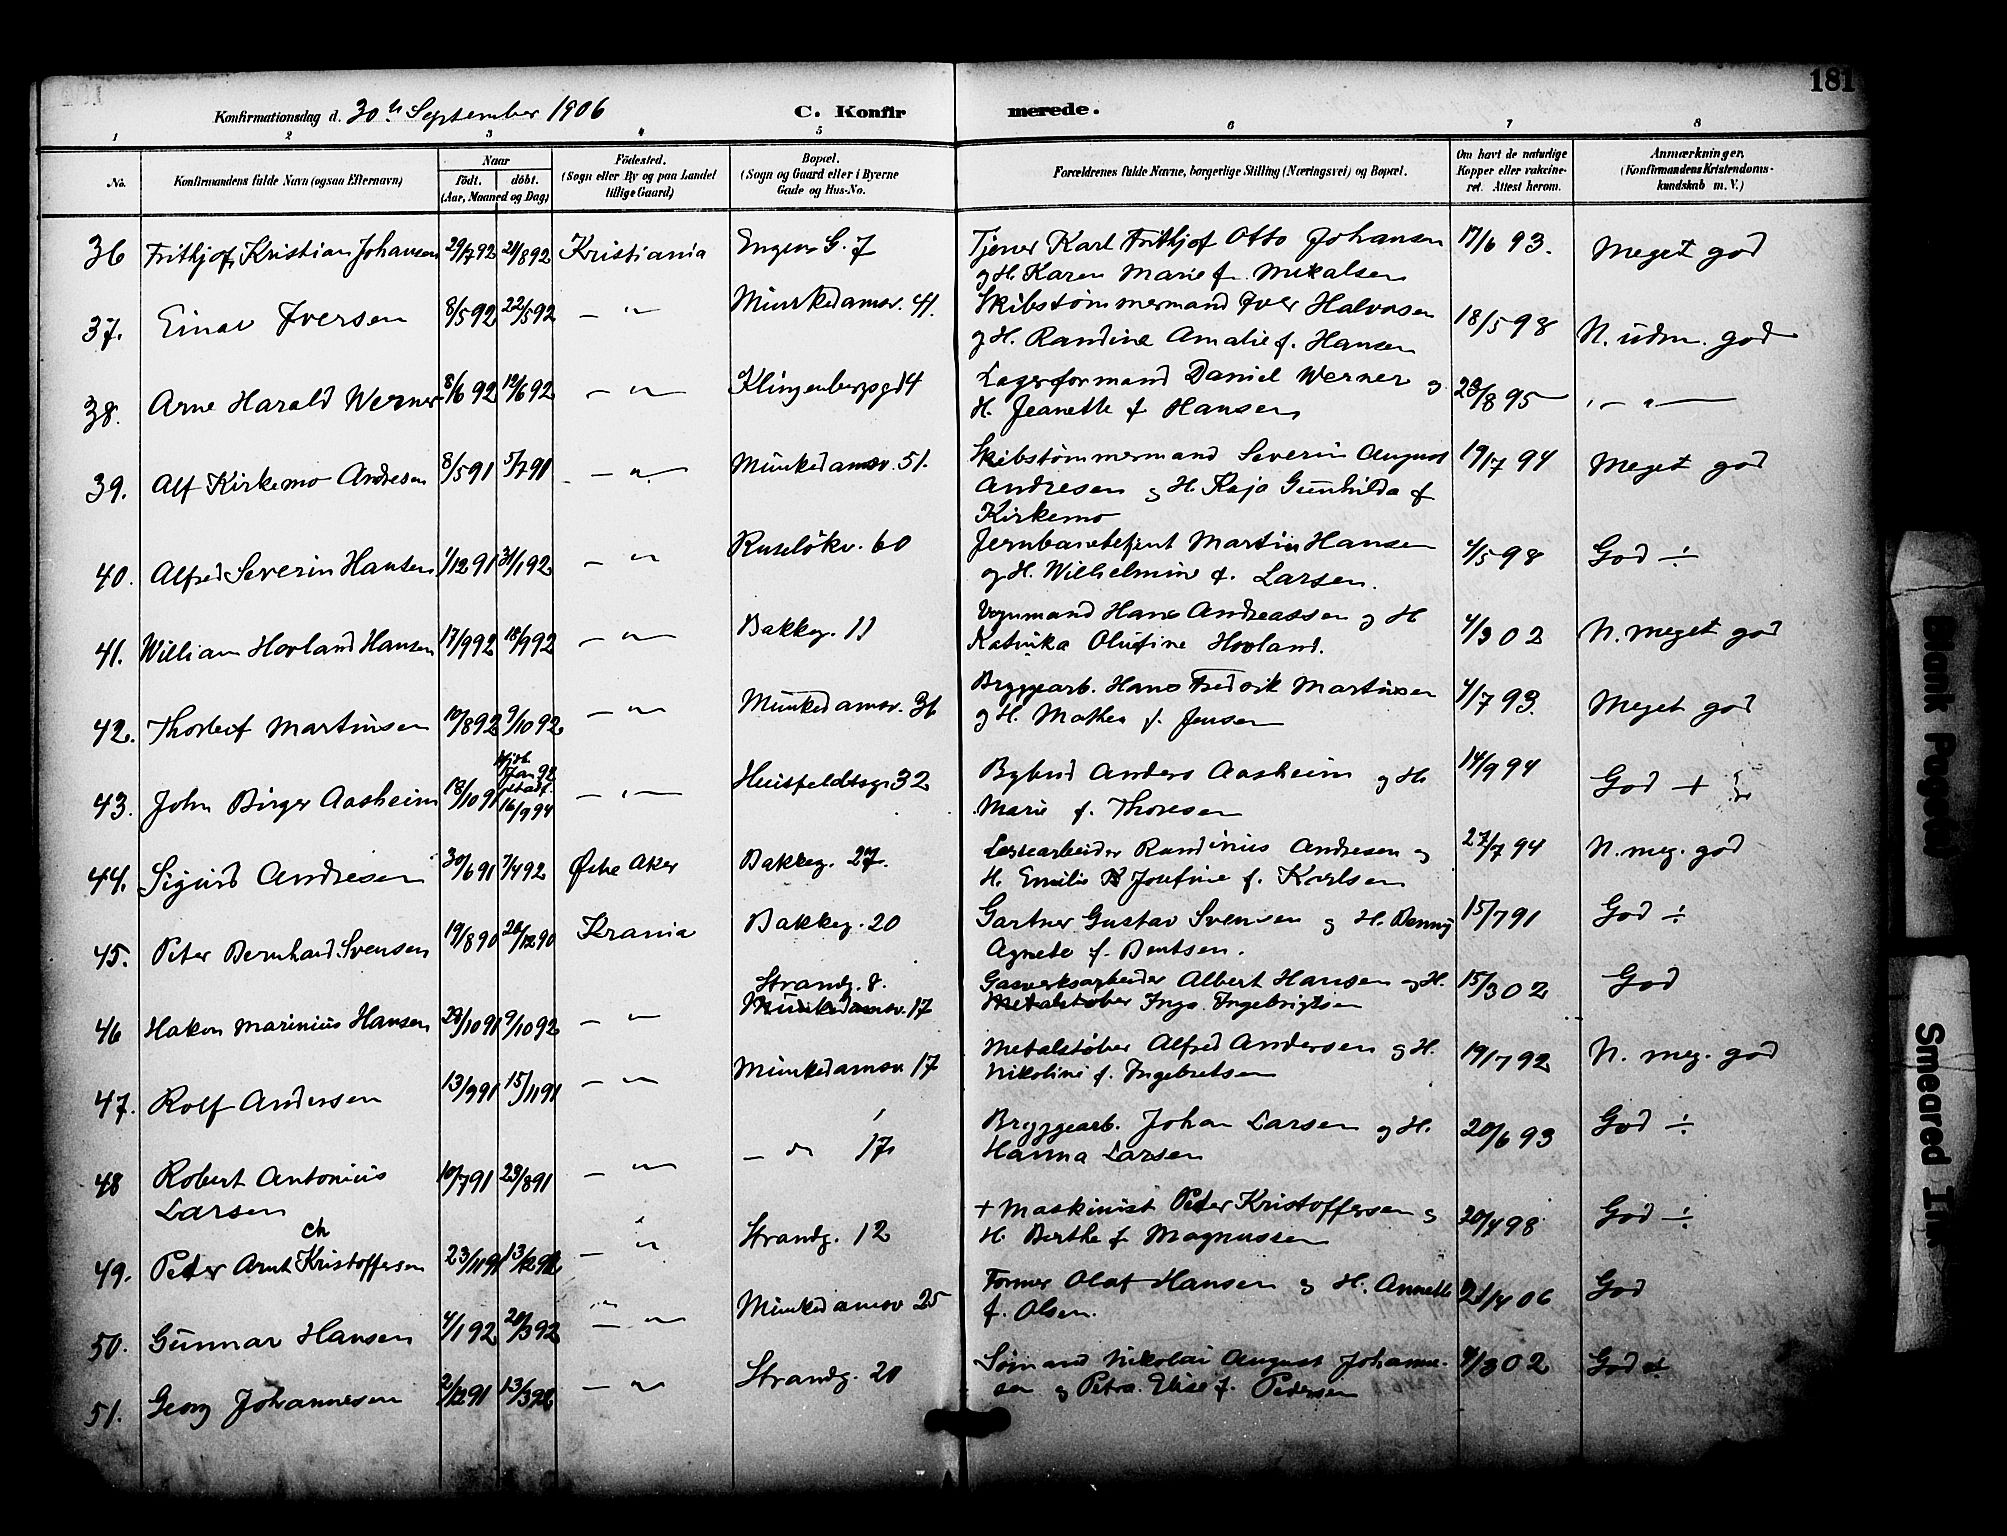 181
Konfirmationsdag d. 30te September 1906 C. Konfirmerede.
1 2 3 4 5 6 7 8
No. Konfirmandens fulde Navn (ogsaa Efternavn) Naar födt. döbt. (Aar, Maaned og Dag) Födested. (Sogn eller By og paa Landet tillige Gaard) Bopæl. (Sogn og Gaard eller i Byerne Gade og Hus-No. Forældrenes fulde Navne, borgerlige Stilling (Næringsvei) og Bopæl. Om havt de naturlige Kopper eller vaccineret. Attest herom. Anmærkninger, (Konfirmandens Kristendomskundskab m. V.)
36 Frithjof Kristian Johansen 29/7 92 21/8 92 Kristiania Engens G. 7 Tjener Karl Frithjof Otto Johansen 17/6 93. Meget god
og H. Karen Marie f. Mikalsen
37. Einar Iversen 8/5 92 22/5 92 — " — Munkedamsv. 41. Skibstømmermand Iver Halvorsen 18/5 98 N. udm. god
og H. Randine Amalie f. Hansen
38. Arne Harald Werner 8/6 92 12/6 92 — " — Klingenberggd 4 Lagerformand Daniel Werner og 23/8 95 — " —
H. Jeanette f. Hansen
39. Alf Kirkemo Andresen 8/5 91 5/7 91 — " — Munkedamsv. 51. Skibstømmermand Severin August 19/7 94 Meget god
Andresen og H. Kaja Gunhilda f.
Kirkemo
40. Alfred Severin Hansen 1/12 91 31/1 92 — " — Ruseløkv. 60 Jernbanebetjent Martin Hansen 4/5 98 God ÷
og H. Wilhelmine f. Larsen.
41. William Hovland Hansen 17/9 92 18/9 92 — " — Bakkeg. 11 Vognmand Hans Andreassen og H 4/3 02 N. meget god
Katinka Olufine Hovland.
42. Thorleif Martinsen 10/8 92 9/10 92 — " — Munkedamsv. 36 Bryggearb. Hans Fredrik Martinsen 4/7 93. Meget god
og H. Mathea f. Jensen
43. John Birger Aasheim 18/10 91 16/9 94 — " — Huitfeldtsg. 32 Bybud Anders Aasheim og H. 14/9 94 God +
Marie f. Thoresen
44. Sigurd Andresen 30/6 91 7/4 92 Østre Aker Bakkeg. 27. Lossearbeider Randinius Andresen og 27/7 94 N. meg. god
H. Emilie Josefine f. Karlsen
45. Peter Bernhard Svensen 19/8 90 26/12 90 Krania Bakkeg. 20 Gartner Gustav Svensen og H. Benny 15/7 91 God ÷
Agnete f. Bentsen.
46 Hakon Marinius Hansen 29/10 91 9/10 92 — " — Strandg. 8. Munkedamsv. 17 Gasverksarbeider Albert Hansen og H. 15/3 02 God
Metalstøber Inga Ingebrigtsen
47. Rolf Andersen 13/9 91 15/11 91 — " — Munkedamsv 17 Metalstøber Alfred Andersen og H. 19/7 92 N. meg. god
Nikoline f. Ingebretsen
48 Robert Antonius 10/7 91 23/8 91 — " — — do 17 Bryggearb. Johan Larsen og H. 20/6 93 God ÷
Larsen Hanna Larsen
49. Peder Arnt Kristoffersen ch 23/11 91 — " — Strandg. 12 + Maskinist Peder Kristoffersen og 20/4 98 God ÷
H. Berthe f. Magnussen
50. Gunnar Hansen 4/1 92 20/3 92 — " — Munkedamsv 25 Former Olaf Hansen og H. Annette 21/4 06 God
f. Olsen.
51. Georg Johannesen 2/12 91 — " — Strandg. 20 Sømand Nikolai August Johanne- 4/3 02 God ÷
sen og Petra Elise f. Pedersen
Blank Page(s)
Smeared Ink